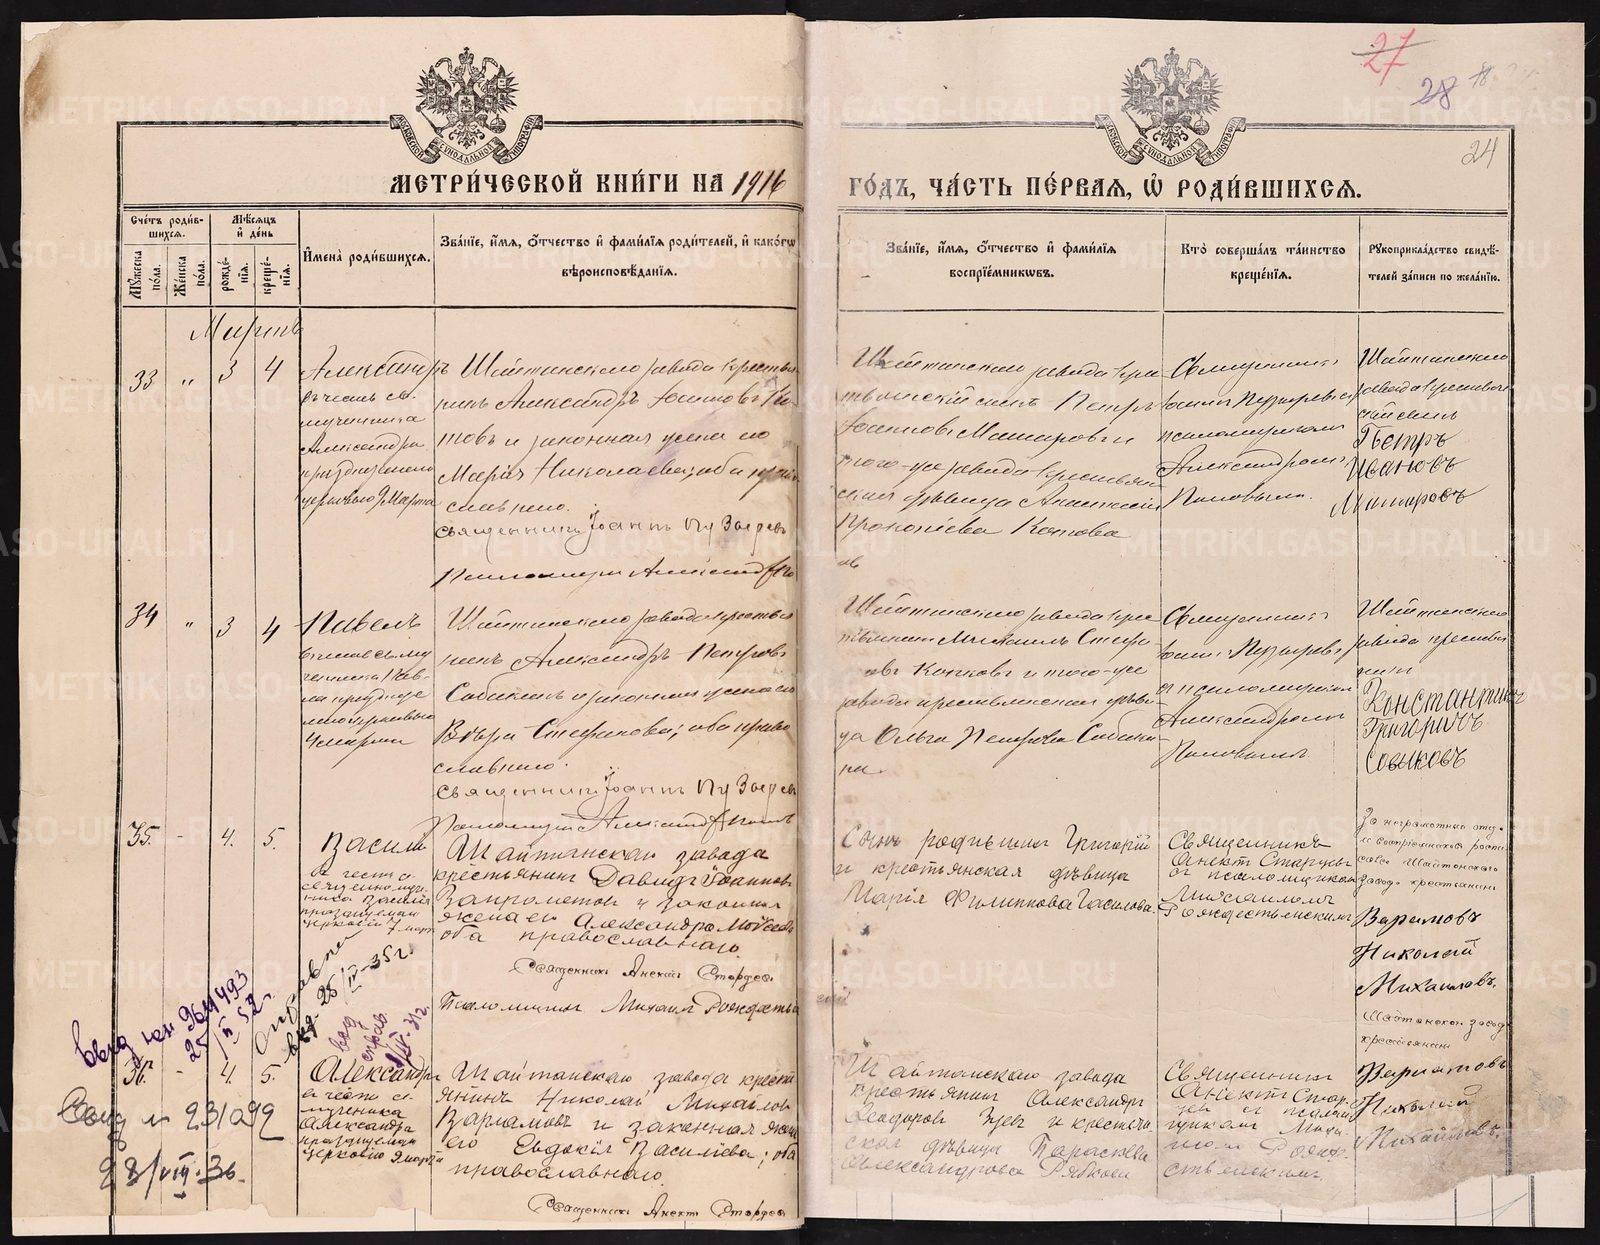 27
28
24
МОСКОВСКОЙ СУНОДАЛЬНОЙ ТИПОГРАФІИ
МОСКОВСКОЙ СУНОДАЛЬНОЙ ТИПОГРАФІИ
МЕТРИ́ЧЕСКОЙ КНИ́ГИ НА 1916
ГО́ДЪ, ЧА́СТЬ ПЕ́РВАЯ, Ѡ РОДИ́ВШИХСЯ.
Сче́тъ роди́в-
шихся.
Му́жеска по́ла.
Же́нска по́ла.
Мѣ́сяцъ
и҆ де́нь
рожде́-
нія.
креще́-
нія.
И҆мена̀ роди́вшихся.
Зва́ніе, и҆́мя, ѻ҆́тчество и҆ фами́лія роди́телей, и҆ како́гѡ
вѣроисповѣ́данія.
Зва́ніе, и҆́мя, ѻ҆́тчество и҆ фами́лія
воспріе́мникѡвъ.
Кто̀ соверша́лъ та́инство
креще́нія.
Рꙋкоприкла́дство свидѣ́-
телей за́писи по жела́нію.
Мартъ
33 „ 3 4
Александръ
въ честь св.
мученика
Александра
празднуемаго
церковью 9 Марта
Шайтанскаго завода крестья
нинъ Александръ Іоанновъ Ко-
товъ и законная жена его
Марія Николаевна, оба право
славнаго.
Священникъ Іоаннъ Пузыревъ
Псаломщикъ Александръ По
Шайтанскаго завода кре
стьянскій сынъ Петръ
Іоанновъ Машаровъ и
того-же завода крестьян
ская дѣвица Анастасія
Прокопіева Котова
Священникъ
Іоаннъ Пузыревъ съ
псаломщикомъ
Александромъ
Поповымъ.
Шайтанскаго
завода крестьян
скій сынъ
Петръ
Ивановъ
Машаровъ
34 „ 3 4
Павелъ
въ честь св. му
ченика Пав-
ла празднуе
маго церковью
4 марта
Шайтанскаго завода крестья
нинъ Александръ Петровъ
Собакинъ и законная жена его
Вѣра Стефанова; оба право
славнаго.
Священникъ Іоаннъ Пузыревъ
Псаломщикъ Александръ Поповъ
Шайтанскаго завода кре
стьянинъ Михаилъ Стефа
овъ и того-же
завода крестьянская дѣви
ца Ольга Петрова Собаки
на.
Священникъ
Іоаннъ Пузыревъ
съ псаломщикомъ
Александромъ
Поповымъ
Шайтанскаго
завода крестья
нинъ
Константинъ
Григоричъ
Совиковъ
35. - 4. 5.
Василій
въ честь
священному-
ника Василія
празднуемаго
церковію 7 марта
Шайтанскаго завода
крестьянинъ Давидъ Іоанновъ
и законная
жена его Александра Моисеева
оба православнаго.
Священникъ Анектъ Старцевъ
Псаломщикъ Михаилъ Рождестве
Сынъ родившій Григорій
и крестьянская дѣвица
Марія Филиппова Гасилова.
Священникъ
Анектъ Старцевъ
съ псаломщикомъ
Михаиломъ
Рождественскимъ
За неграмотнаго отца
и воспріемника роспи
сался Шайтанскаго
завода крестьянинъ
Варламовъ
Николай
Михаиловъ.
Шайтанскаго завода
крестьянинъ
Варламовъ
Николай
Михайловъ.
25/IV-35 г.
25/II 52 г.
36. - 4. 5.
Александръ
въ честь св.
мученика
Александра
празднуемаго
церковію 9 марта
Шайтанскаго завода кресть
янинъ Николай Михаиловъ
Варламовъ и законная жена
его Евдокія Василіева; оба
православнаго.
Священникъ Анектъ Старцевъ
Шайтанскаго завода
крестьянинъ Александръ
Ѳеодоровъ Зуевъ и крестьян
ская дѣвица Параскева
Александрова Рябкова
Священникъ
Анектъ Стар
цевъ съ псалом
щикомъ Миха
иломъ Рожде
ственскимъ.
28/VIII-36.
METRIKI.GASO-URAL.RU